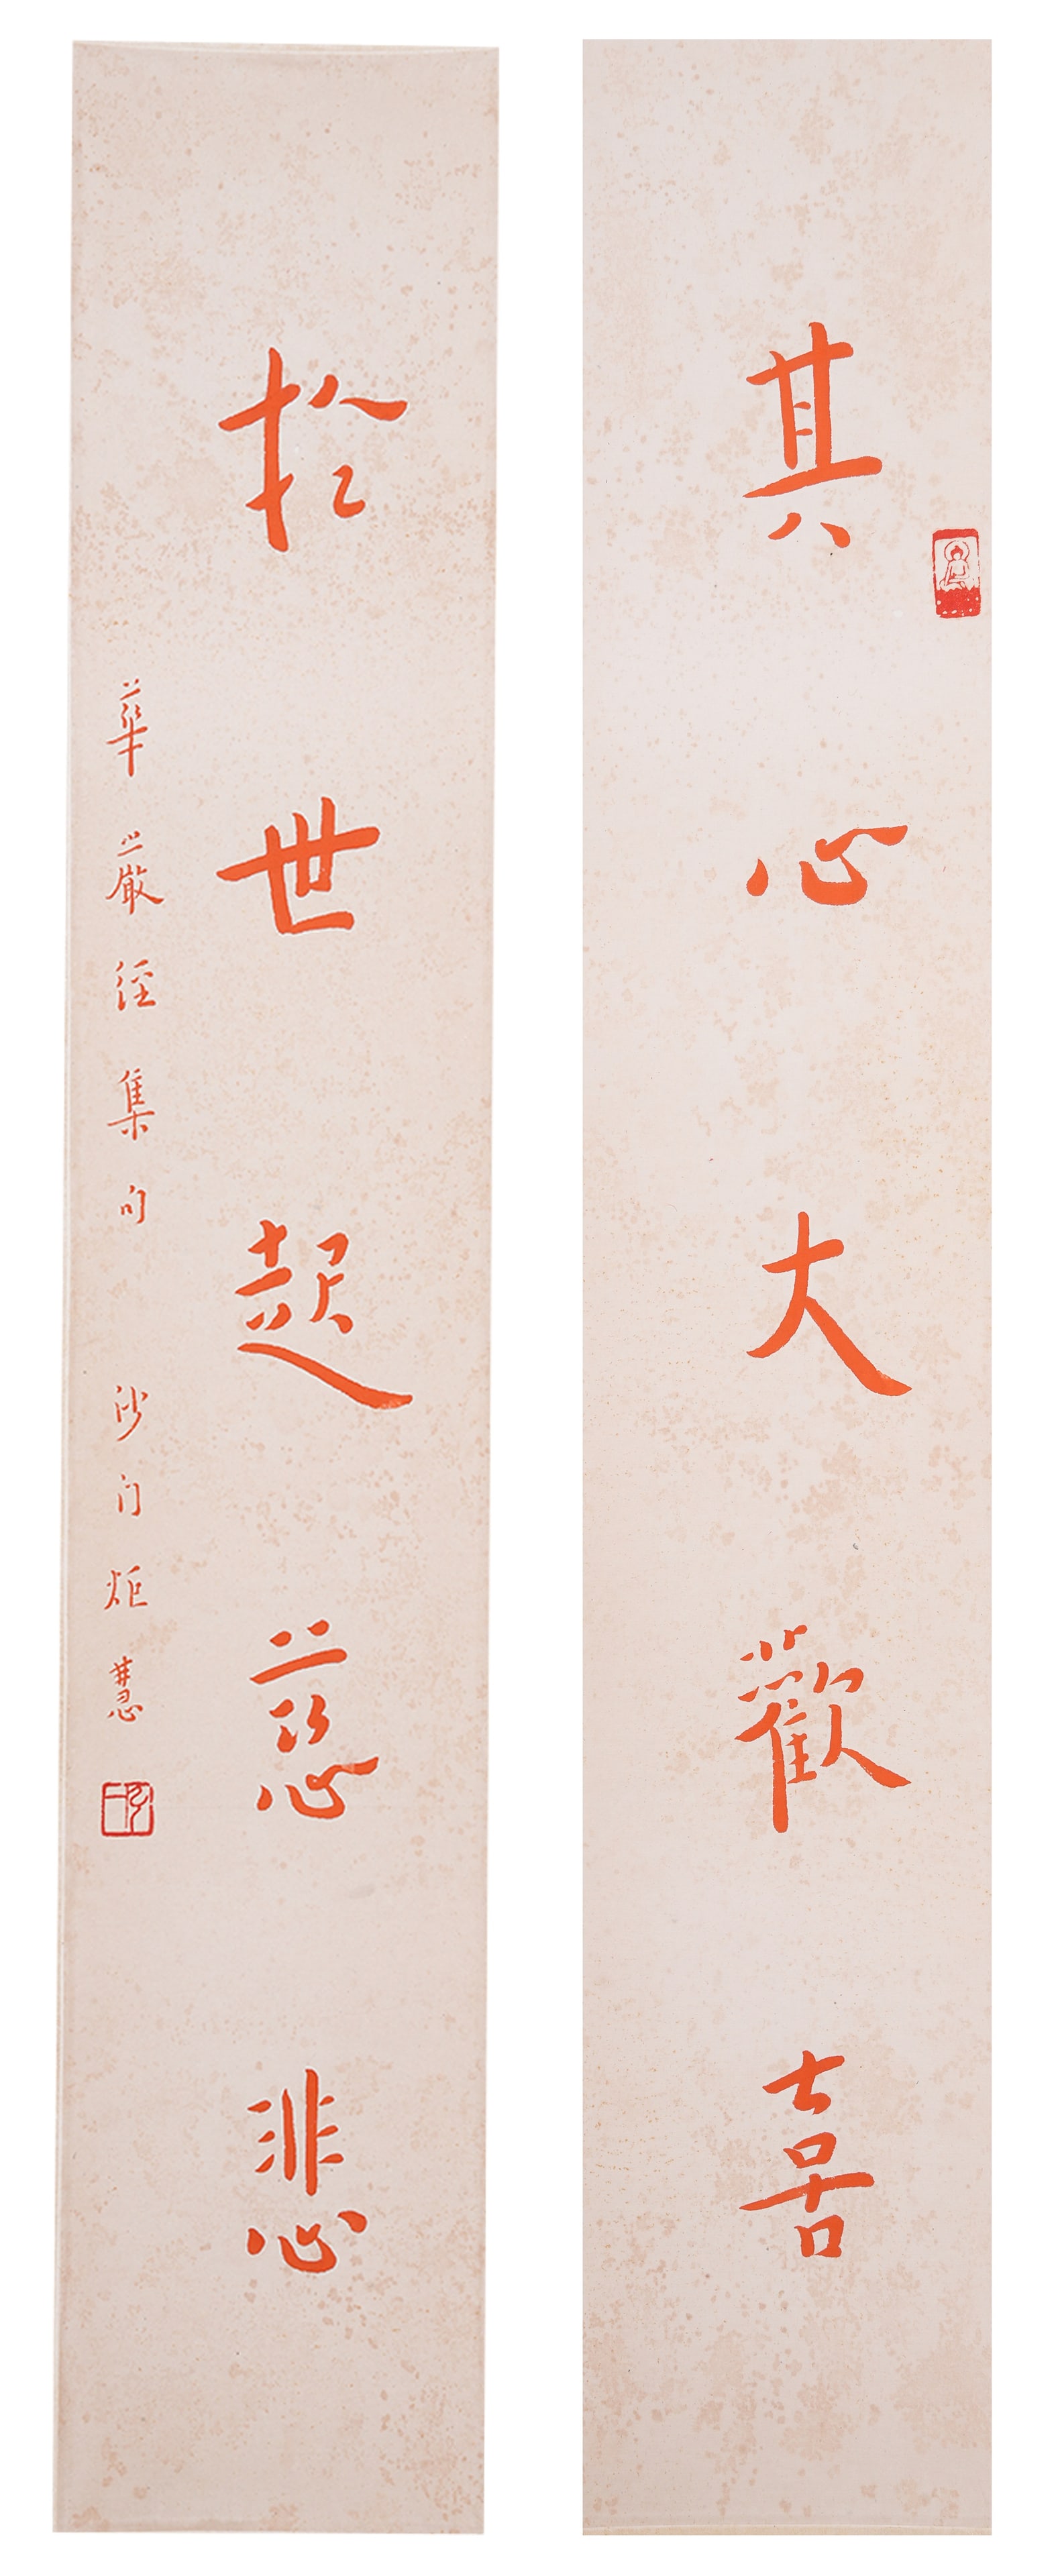 其心大歡喜
於世起慈悲
華嚴經集句 沙門炬慧